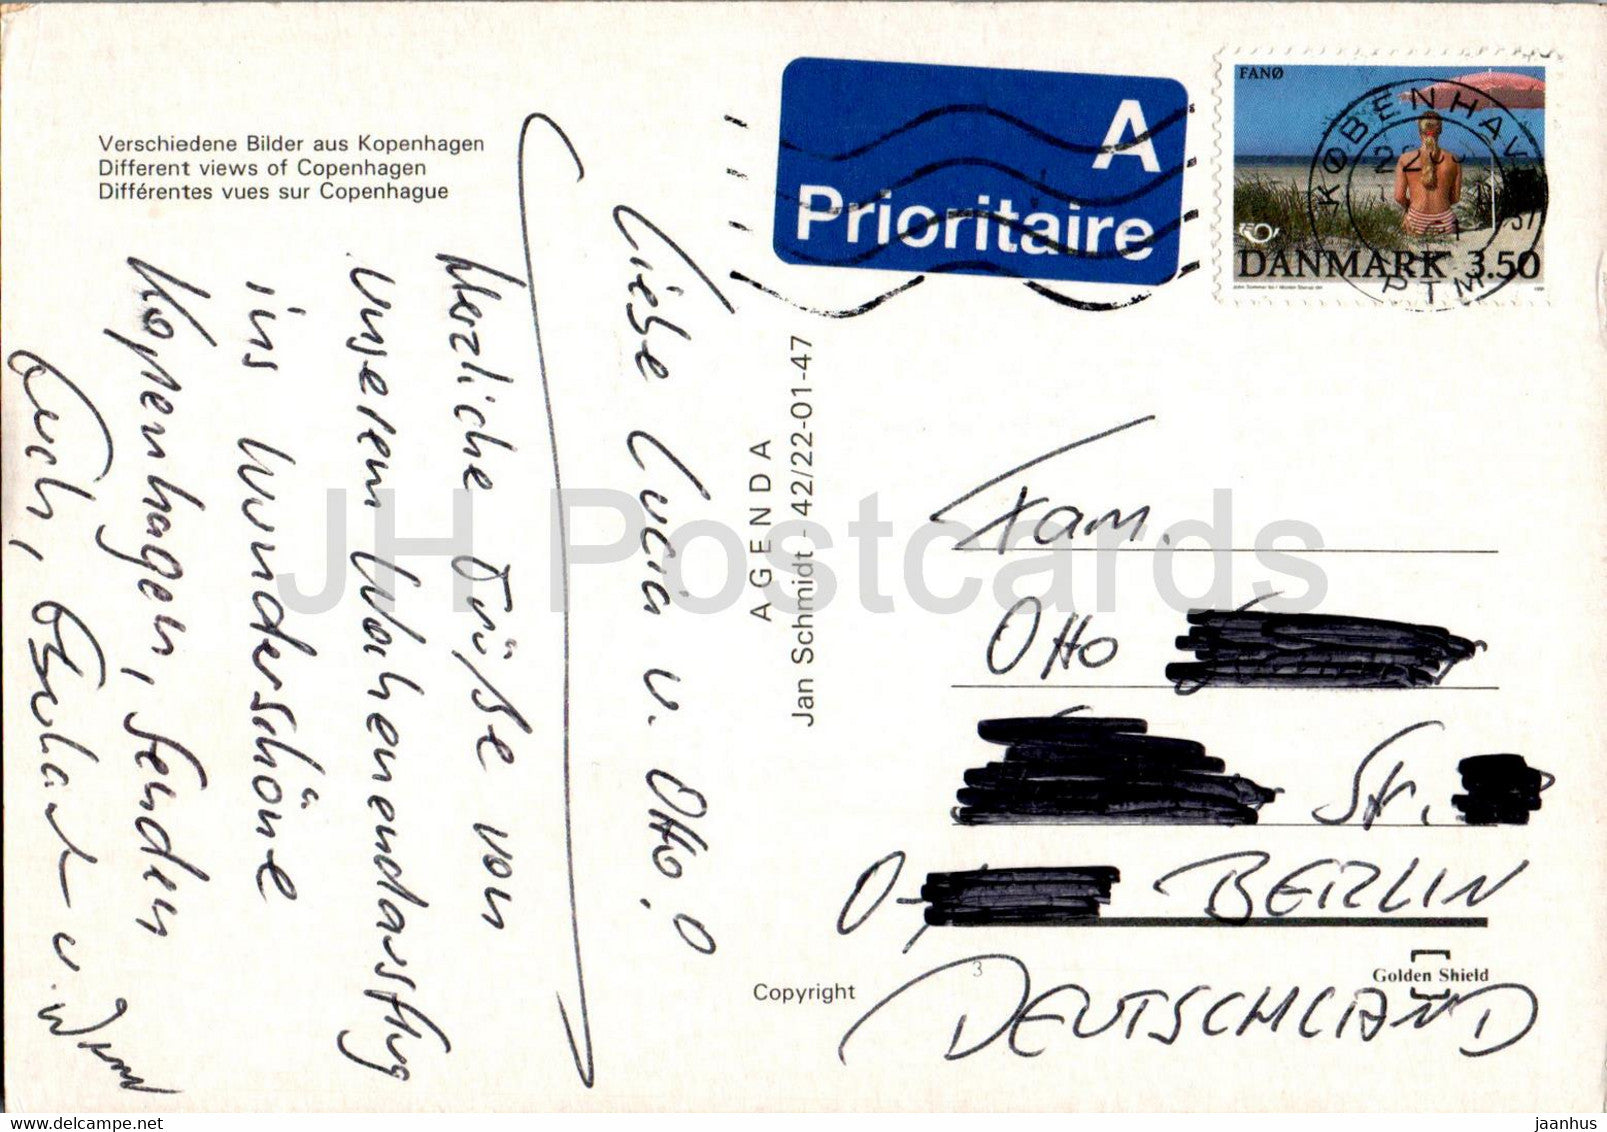 Verschiedene Bilder aus Kopenhagen
Different views of Copenhagen
Différentes vues sur Copenhague
A
Prioritaire
FANØ
KØBENHAV
DANMARK 3.50
Liebe Lucia u. Otto!
Herzliche Grüße von
unserem Wochenendausflug
ins wunderschöne
Kopenhagen, senden
Euch,
AGENDA
Jan Schmidt - 42/22-01-47
Fam.
Otto
Str.
O-
BERLIN
DEUTSCHLAND
3
Golden Shield
Copyright
JH Postcards
www.delcampe.net
jaanhus